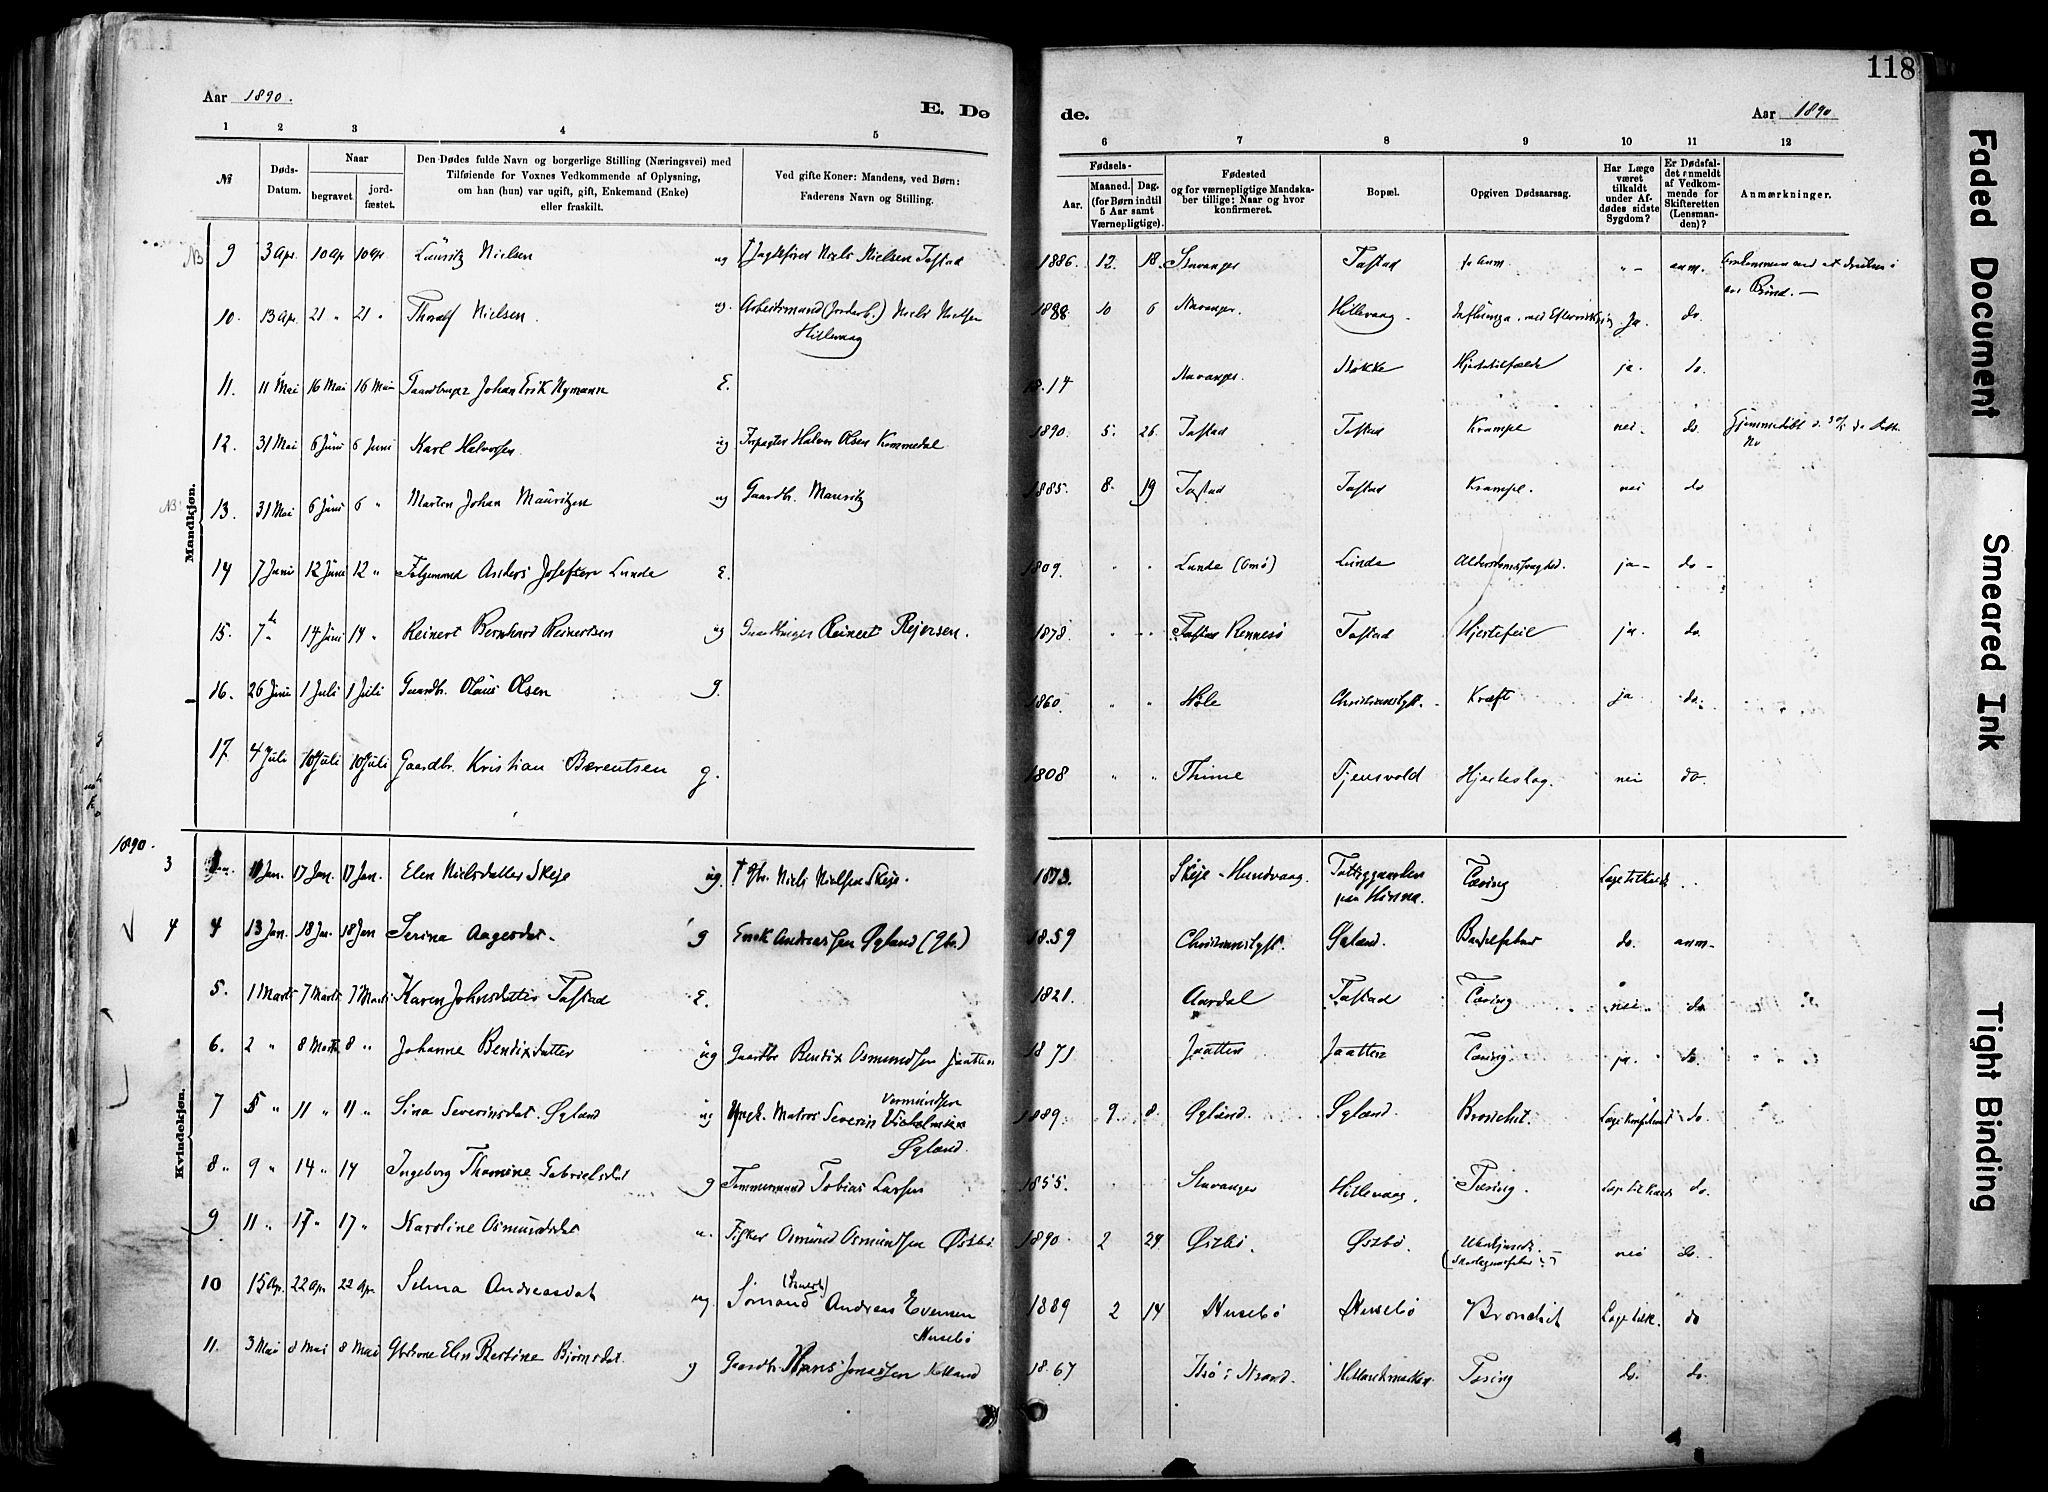 118
Aar 1890.
E. Dø
de.
Aar 1890
1 2 3 4 5 6 7 8 9 10 11 12
№
Døds-
Datum.
Naar
begravet
jord-
fæstet.
Den Dødes fulde Navn og borgerlige Stilling (Næringsvei) med
Tilføiende for Voxnes Vedkommende af Oplysning,
om han (hun) var ugift, gift, Enkemand (Enke)
eller fraskilt.
Ved gifte Koner: Mandens, ved Børn:
Faderens Navn og Stilling.
Fødsels-
Aar.
Maaned. Dag.
(for Børn indtil
5 Aar samt
Værnepligtige).
Fødested
og for værnepligtige Mandska-
ber tillige: Naar og hvor
konfirmeret.
Bopæl.
Opgiven Dødsaarsag.
Har Læge
været
tilkaldt
under Af-
dødes sidste
Sygdom?
Er Dødsfal-
det anmeldt
af Vedkom-
mende for
Skifteretten
(Lensman-
den)?
Anmærkninger.
Mandkjøn.
NB 9 3 Apr. 10 Ap 10 Apr Lauritz Nielsen ug † Niels Nielsen Tastad 1886. 12. 18. Stavanger Tastad anm.
10. 13 Apr. 21 " 21 " Thoralf Nielsen. ug. Arbeidsmand (Jorderb.) Niels Nielsen
Hillevaag
1888 10 6 Stavanger. Hillevaag. Influenza, med Ja. do.
11. 11 Mai 16 Mai 16 Mai Gaardbruger Johan Erik Nymann E. 14 Stavanger. Hjertetilfælde ja. do.
12. 31 Mai 6 Juni 6 Juni Karl Halvorsen. ug Forpagter Halvor Olsen Kommedal 1890. 5. 26. Tastad Tastad Krampe nei. do.
NB 13. 31 Mai 6 Juni 6 " Marten Johan Mauritzen ug Gaardbr. Mauritz 1885. 8. 19 Tastad Tastad Krampe. nei do
14 7 Juni 12 Juni 12 " Følgemand Anders Josefsen Lunde E. 1809. " " Lunde (Omø) Lunde Alderdomssvaghed. ja - do -
15. 7 " 14 Juni 14 " Reinert Bernhard Reinertsen ug Gaardbruger Reinert Rejersen. 1878 " " Rennesø Tastad Hjertefeil ja. do.
16. 26 Juni 1 Juli 1 Juli Gaardbr. Olaus Olsen g. 1860. " " Høle Christianslyst. Kræft ja do.
17. 4 Juli 10 Juli 10 Juli Gaardbr. Kristian Bærentsen g. 1808 " " Thime Tjensvold Hjerteslag. nei do.
1890.
Kvindekjøn.
3 11 Jan. 17 Jan. 17 Jan. Elen Nielsdatter Skeje ug. † Gbr. Niels Nielsen Skeje. 1873. Skeje - Hundvaag. Fattiggaarden
paa Hinna.
Tæring Læge tilkaldt
4 4 13 Jan. 18 Jan. 18 Jan Serina Aagesdat. g Enok Andreassen Øgland (Gbr.) 1859 Christianslyst. Øgland. Barselfeber do. anm.
5. 1 Marts 7 Marts 7 Marts Karen Johnsdatter Tastad E. 1821. Aardal Tastad Tæring nei do
6. 2 " 8 Marts 8 " Johanne Bendixdatter ug Gaardbr Bendix Osmundsen Jaatten 1871 Jaatten Jaatten Tæring. ja. do.
7 5 " 11 " 11 " Sina Severinsdat. Øgland ug Ungk. Matros Severin Vermundsen
Øgland.
1889. 9 8. Øgland. Øgland. Bronchit. do.
8 " 9 " 14 " 14 Ingeborg Thomine Gabrielsdat g Tømmermand Tobias Larsen 1855. Stavanger Hillevaag. Tæring. Læge tilkaldt do.
9 11 " 17 " 17 " Karoline Osmundsdat u. Fisker Osmund Osmundsen Østbø. 1890 2 24 Østbø. Østbø. nei do.
10 15 Ap. 22 Apr 22 Apr. Selma Andreasdat ug. Sømand Andreas Evensen
Husebø
1889 2 14 Husebø Husebø Bronchit Læge tilk. do
11. 3 Mai 8 Mai 8 Mai Gbrkone Elen Bertine Bjørnsdat. g Gaardbr. Hans Jonassen 1867 i Strand. Tæring do. do.
Faded Document
Smeared Ink
Tight Binding